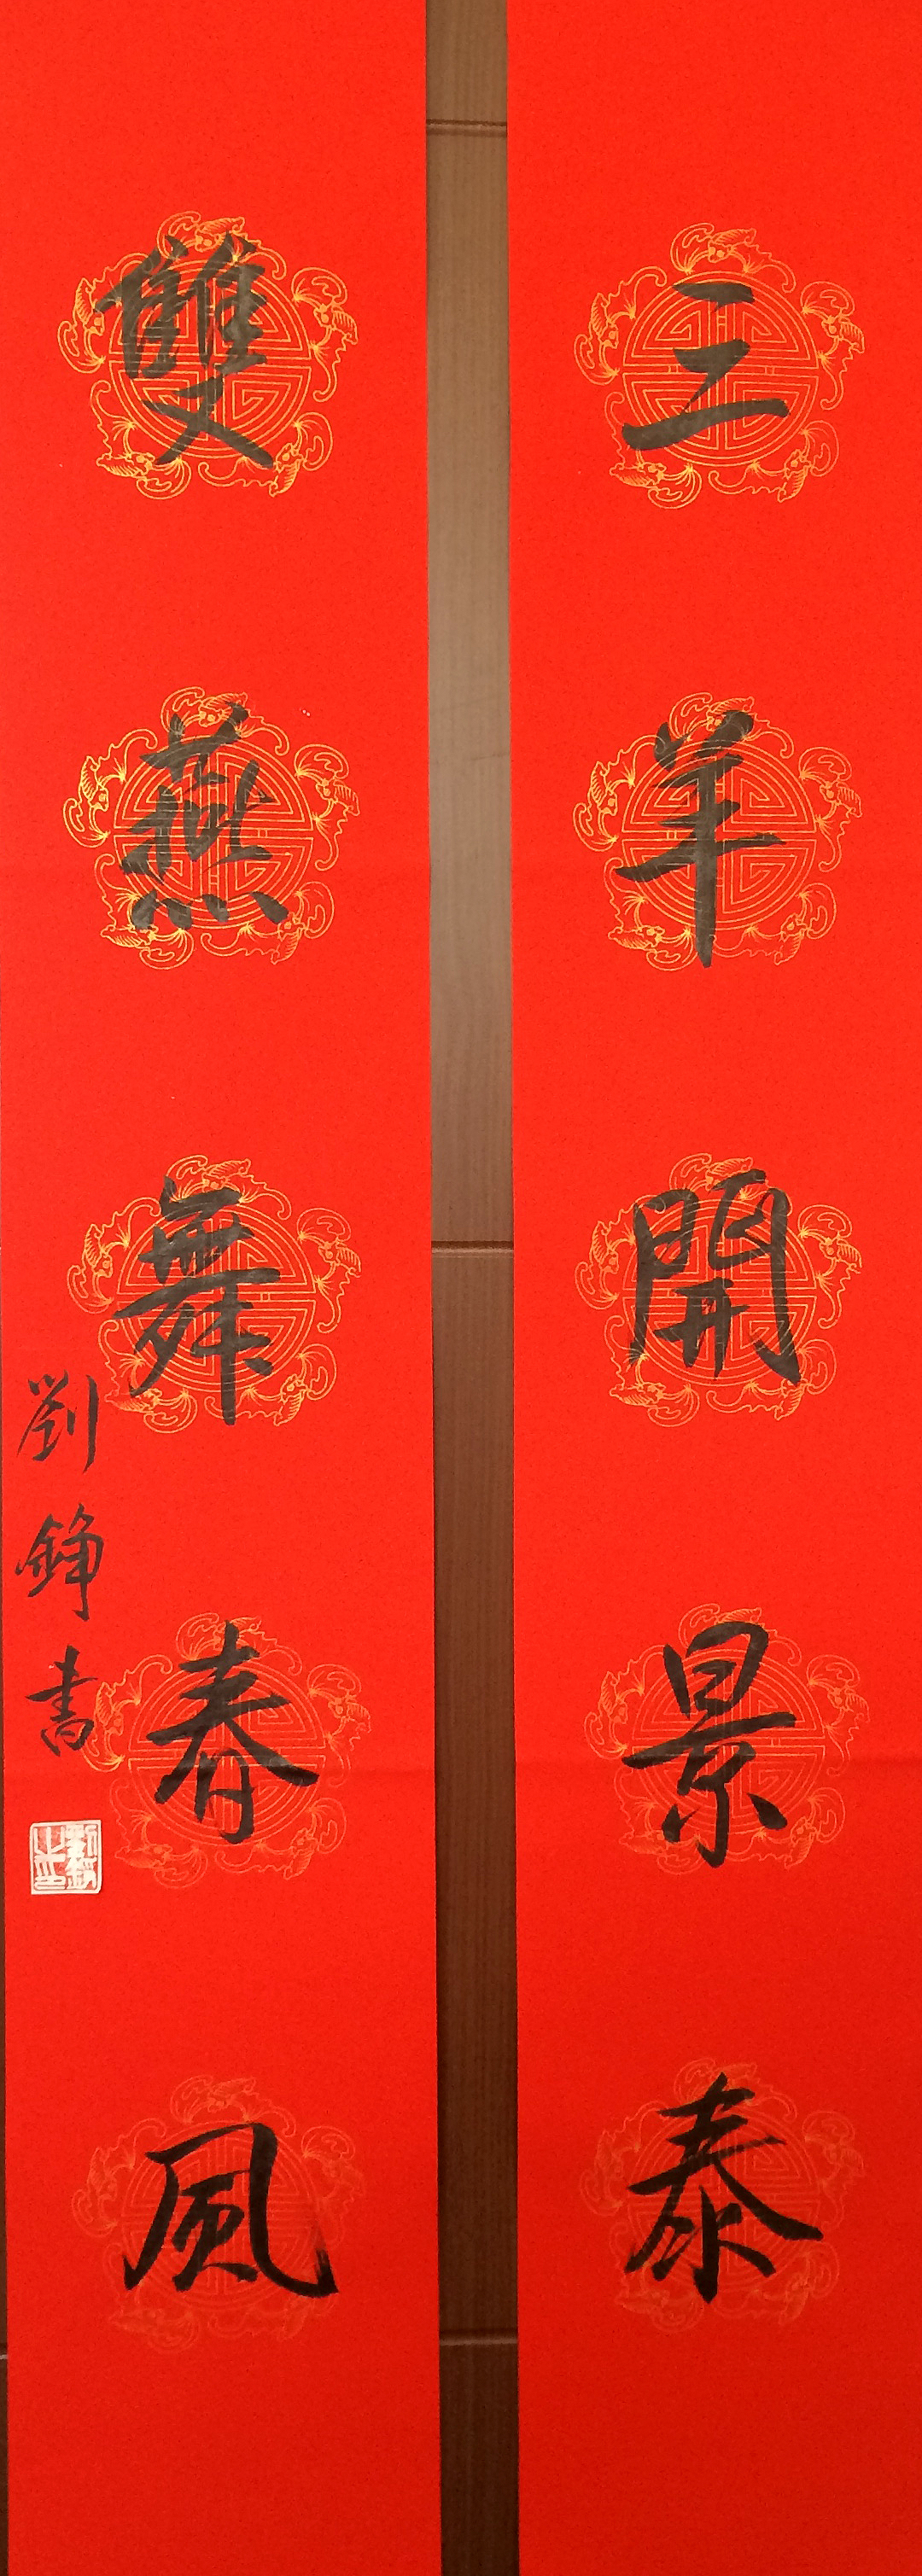 三羊開景泰
雙燕舞春風
劉錚書